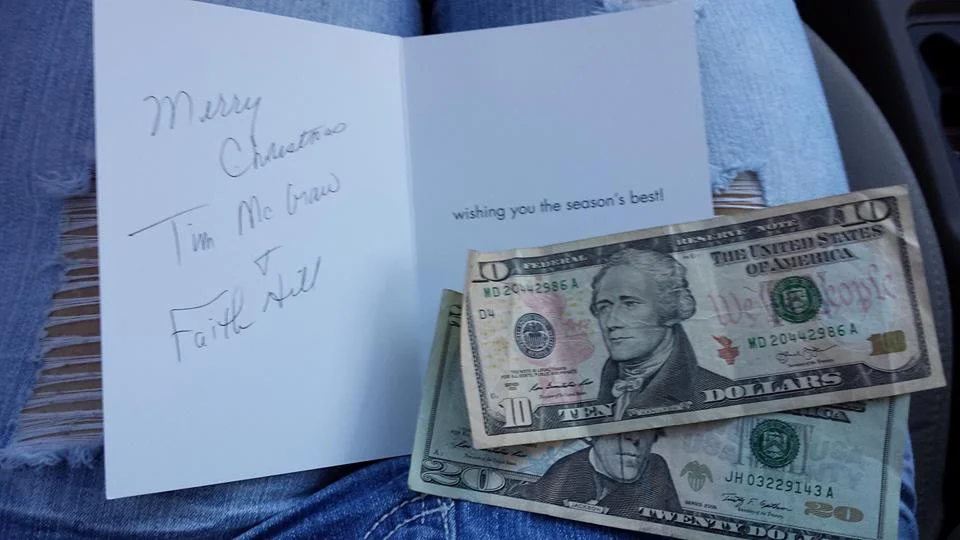 Merry
Christmas
Tim McGraw
+
Faith Hill
wishing you the season's best!
10
FEDERAL RESERVE NOTE
10
THE UNITED STATES
OF AMERICA
MD 20442986 A
D4
We the People
MD 20442986 A
10
TEN DOLLARS
10
20
JACKSON
JH 03229143 A
20
TWENTY DOLLARS